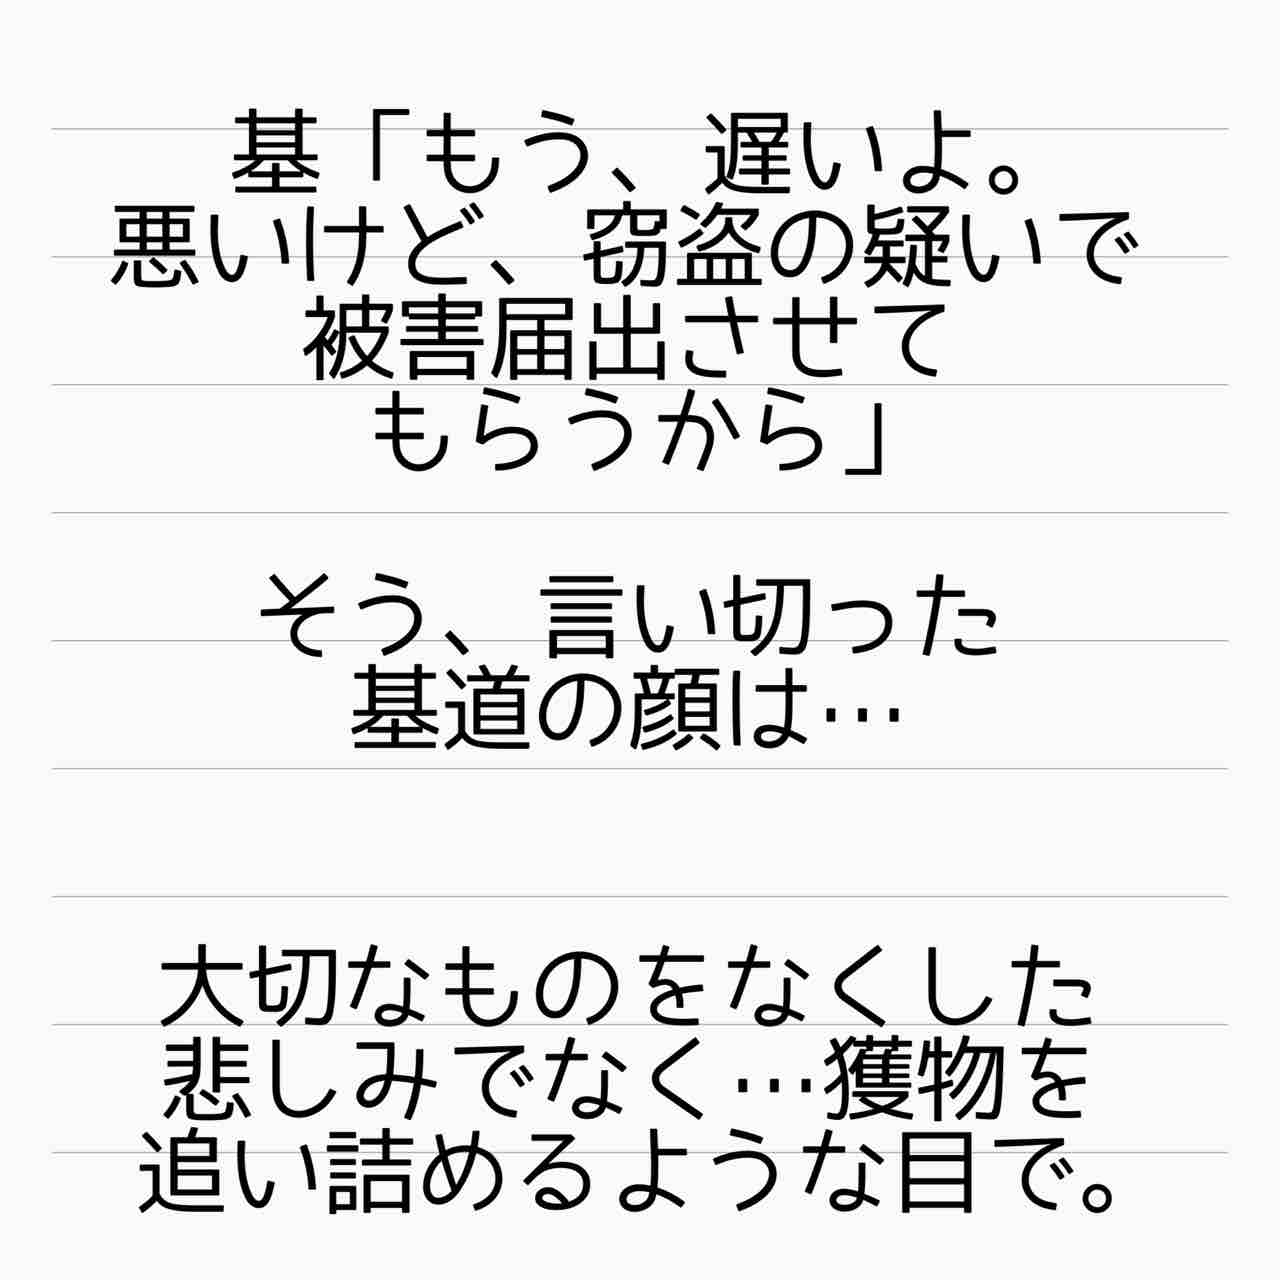 基「もう、遅いよ。
悪いけど、窃盗の疑いで
被害届出させて
もらうから」
そう、言い切った
基道の顔は…
大切なものをなくした
悲しみでなく…獲物を
追い詰めるような目で。